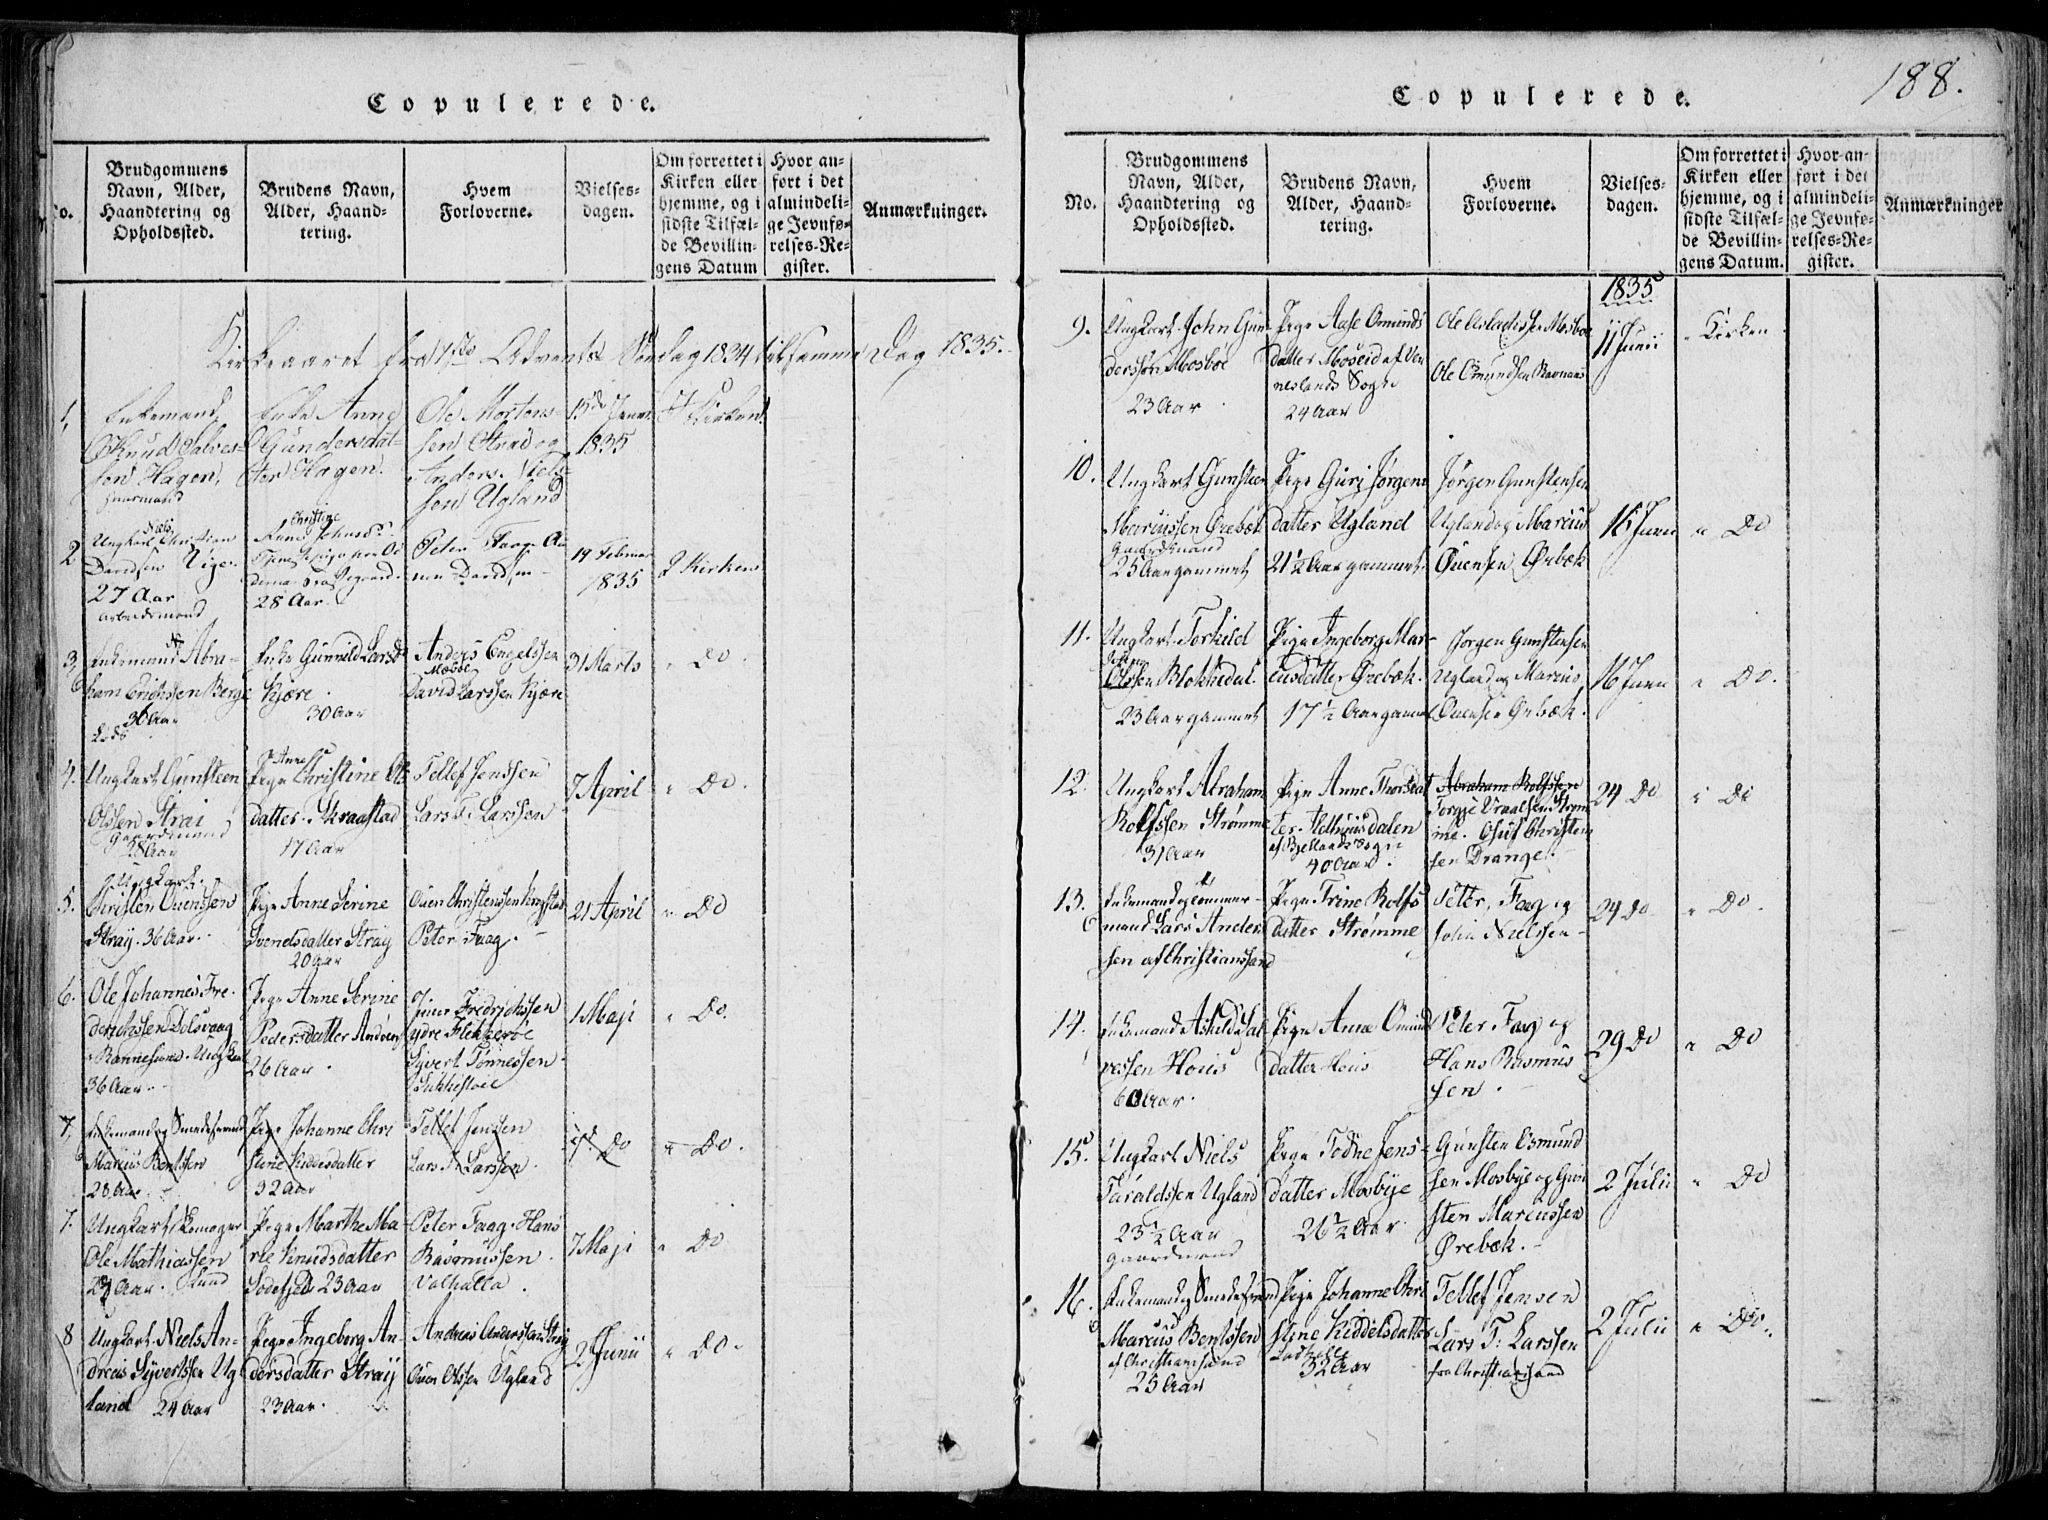 Copulerede.
No.
Brudgommens Navn, Alder, Haandtering og Opholdssted.
Brudens Navn, Alder, Haandtering.
Hvem Forloverne.
Vielses-dagen.
Om forrettet i Kirken eller hjemme, og i sidste Tilfælde Bevillingens Datum
Hvor anført i det almindelige Jevnførelses-Register.
Anmærkninger.
Kirkeaaret fra 1ste Advents Søndag 1834 til samme Dag 1835.
1,
Enkemand
Knud Salves-
sen Hagen,
Huusmand
Enke Anne
Gundersdat-
ter Hagen.
Ole Mortens-
sen Straⁱ og
Anders Niels-
sen Ugland
15de Januar
1835
I Kirken
2
Niels
Ungkarl Christian
Davidsen Vige.
27 Aar
arbeidsmand
Christine
28 Aar.
Peter Faag
Davidsen
19 Februar
1835
I Kirken
3,
Enkemand Abra-
ham Erichssen Berge
36 Aar
Enke Gunnild Larsd
Kjære.
30 Aar
Anders Engelssen
Mosbÿe
David Larssen Kjære
31 Marts
" Do.
4.
Ungkarl Gunsteen
Olssen Strai
gaardmand
28 Aar
Anne
Pige Christine Ols
datter Kraastad
17 Aar
Tellef Jenssen
Lars T. Larssen
7 April
" Do.
5.
Ungkarl
Christen Ouenssen
Straij. 36 Aar.
Pige Anne Serine
Svendsdatter Straÿ
20 Aar
Ouen Christenssen
Peter Faag.
21 April
" Do
6.
Ole Johannes Fre-
derichssen Dolsvaag
Ungkarl
36 Aar.
Pige Anne Serine
Pedersdatter Andøen
26 Aar.
Fredrichssen
ydre Flekkerøe
Syvert Tønnessen
1 Maji
" Do.
7,
Enkemand og Smedesvend
Marcus Bentssen
28 Aar
Pige Johanne Chri
stine Kiddelsdatter
32 Aar
Tellef Jenssen
Lars T. Larssen
Do
" Do.
7.
Ungkarl Skomager
Ole Mathiassen
Lund
Pige Marthe Ma-
rie Knudsdatter
Sødefjed 23 Aar
Peter Faag. Hans
Rasmussen
Valhalla.
7 Maji
" Do
8
Ungkarl Niels An-
dreas Syvertssen Ug
land 24 Aar
Pige Ingeborg An-
dersdatter Straÿ
23 Aar.
Andreas Anderssen Straÿ
Ouen Olssen Ugland
2 Junii
" Do.
188.
Copulerede.
No.
Brudgommens Navn, Alder, Haandtering og Opholdssted.
Brudens Navn, Alder, Haandtering.
Hvem Forloverne.
Vielses-dagen.
Om forrettet i Kirken eller hjemme, og i sidste Tilfælde Bevillingens Datum.
Hvor anført i det almindelige Jevnførelses-Register.
Anmærkninger
1835
9.
Ungkarl John Gun-
derssen Mosbøe
23 Aar
Pige Aase Omunds
datter Moseid af Ven
neslands Sogn
24 Aar
Ole Aslachssen Mosbøe
Ole Omundsen Ravnaas
11 Junii
" Kirken
10.
Ungkarl Gunsteen
Marcussen Ørebæk
gaardmand
25 Aar gammel
Pige Guri Jørgens
datter Ugland
21½ Aar gammel.
Jørgen Gunstensen
Ugland og Marcus
Ouensen Ørebæk
16 Junii
" Do
11.
Ungkarl Torkild
Olssen Blokkedal.
23 Aar gammel
Pige Ingeborg Mar-
cusdatter Ørebæk.
17½ Aar gammel
Jørgen Gunstensen
Ugland og Marcus
Ouensen Ørebæk.
16 Junii
" Do.
12.
Ungkarl Abraham
Rolfssen Strømme
31 Aar
Pige Anne Thorsdat
ter
af Bjellands Sogn
40 Aar.
Abraham Rolfssen
Torgje Vraalsen Strøm
me. Oluf Christen
sen Drange.
24 Do
" Do
13.
Enkemand og Tømmer-
mand Lars Anders
sen af Christianssand
Pige Trine Rolfs
datter Strømme
Peter Faag og
John Nielssen
24 Do
" Do.
14.
Enkemand Askild Sal
vessen Hous
60 Aar.
Pige Anne Omund
datter Hous
Peter Faag og
Hans Rasmus
sen.
29 Do
" Do
15.
Ungkarl Niels
Taraldssen Ugland
23½ Aar
gaardmand
Pige Todne Jens-
datter Mosbye
26½ Aar.
Gunsten Osmund
sen Mosbye og Gun
sten Marcussen
Ørebæk.
2 Julii
" Do
16.
Enkemand og Smedesvend
Marcus Bentssen
af Christianssand
25 Aar
Pige Johanne Chri
stine Kiddelsdatter
32 Aar
Tellef Jensen
Lars T. Larssen
fra Christianssand
2 Julii
" Do.